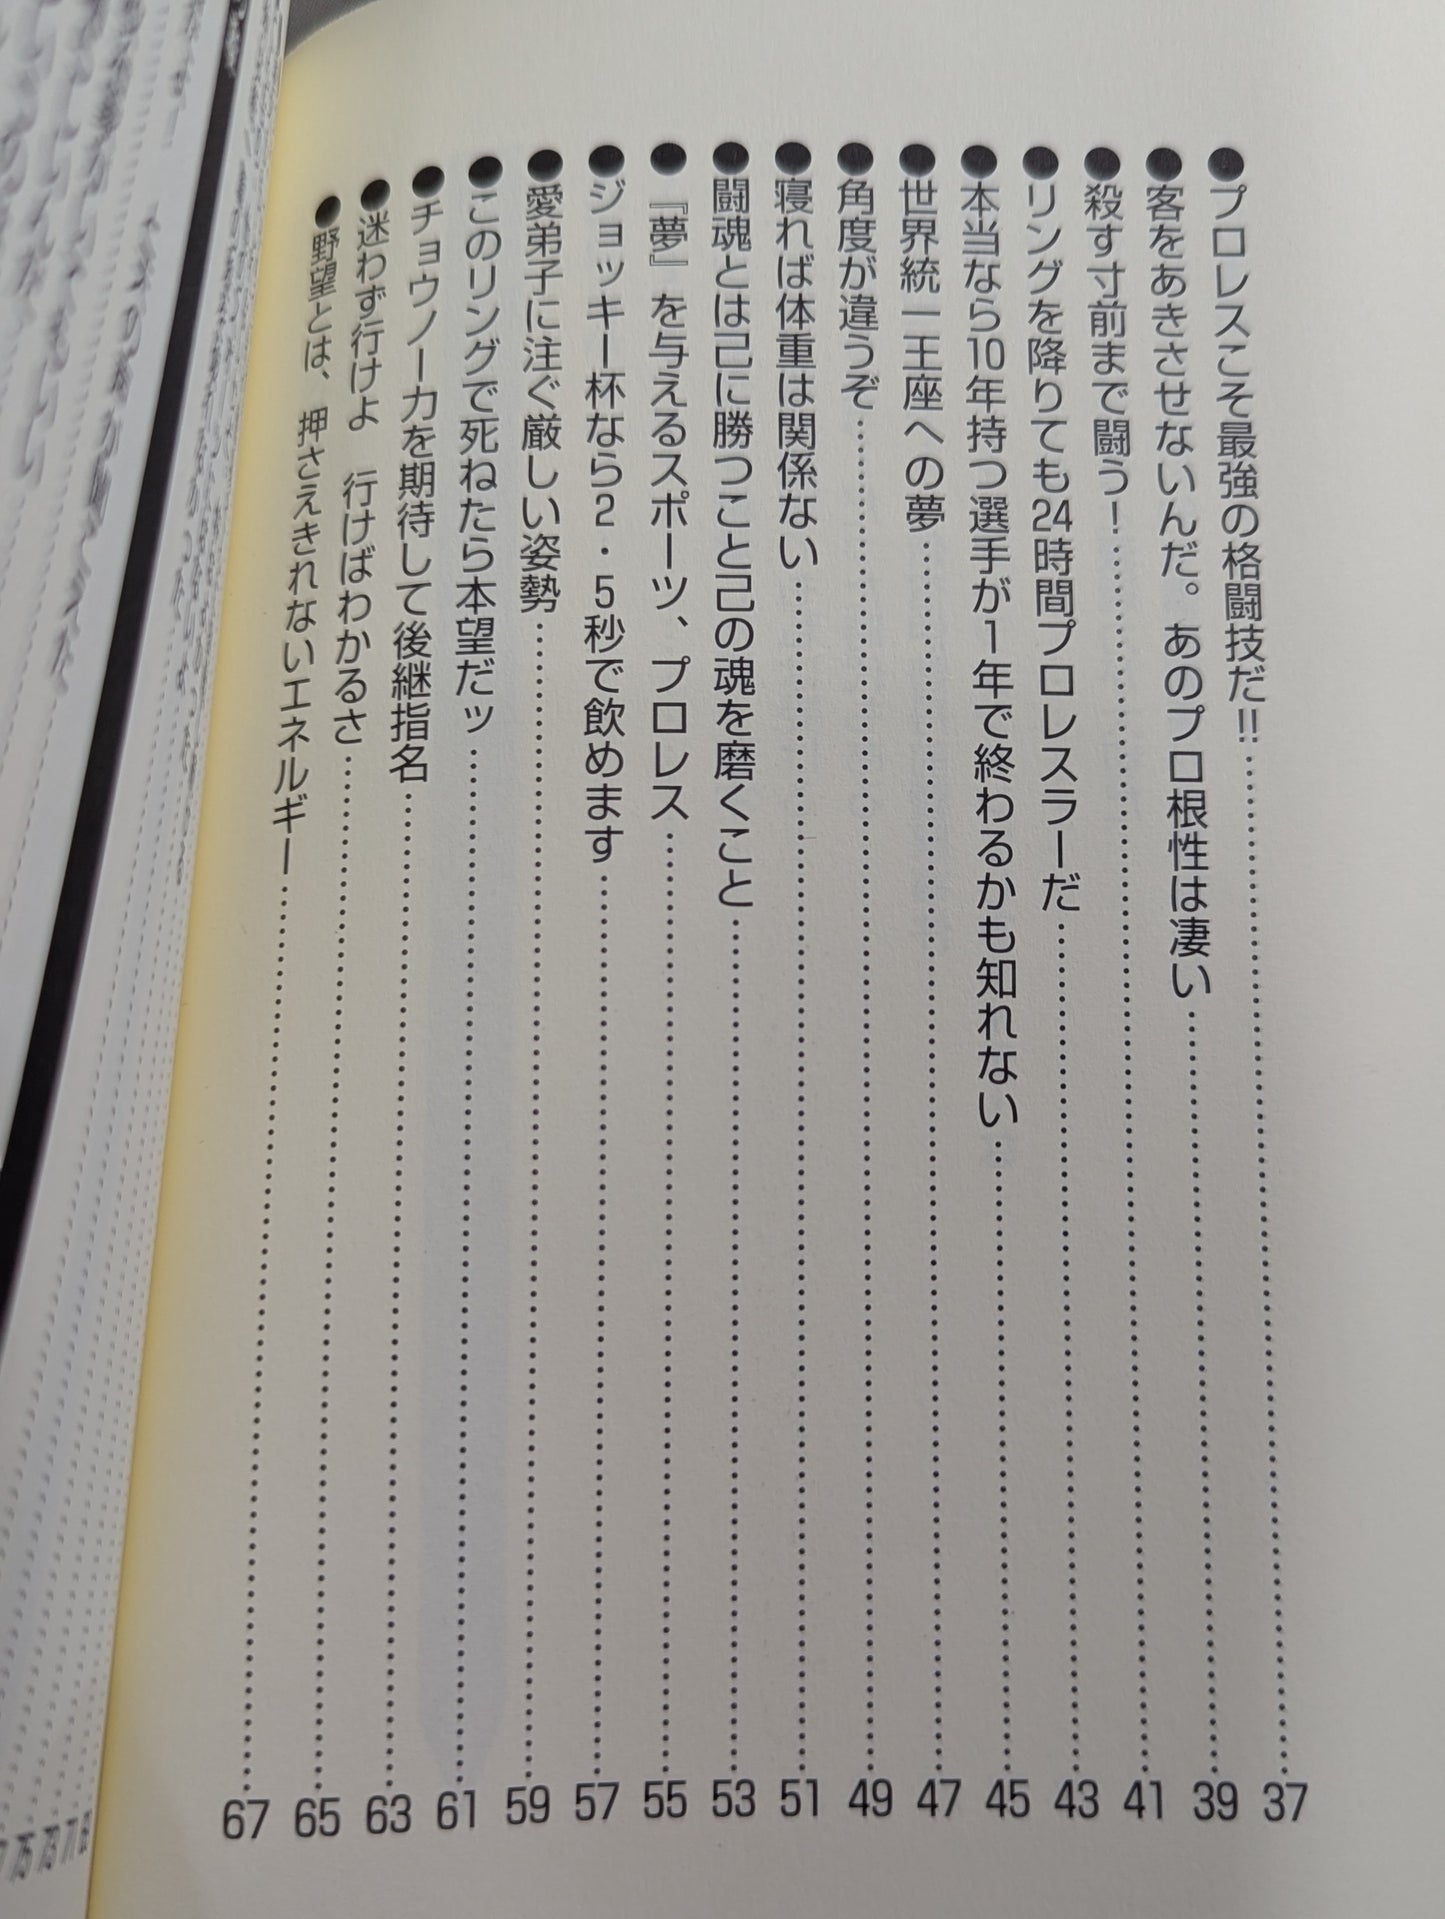 ●プロレスこそ最強の格闘技だ!!……37
●客をあきさせないんだ。あのプロ根性は凄い……39
●殺す寸前まで闘う!……41
●リングを降りても24時間プロレスラーだ……43
●本当なら10年持つ選手が1年で終わるかも知れない……45
●世界統一王座への夢……47
●角度が違うぞ……49
●寝れば体重は関係ない……51
●闘魂とは己に勝つこと己の魂を磨くこと……53
●『夢』を与えるスポーツ、プロレス……55
●ジョッキー杯なら2・5秒で飲めます……57
●愛弟子に注ぐ厳しい姿勢……59
●このリングで死ねたら本望だッ……61
●チョウノ一力を期待して後継指名……63
●迷わず行けよ 行けばわかるさ……65
●野望とは、押さえきれないエネルギー……67
75
73
71